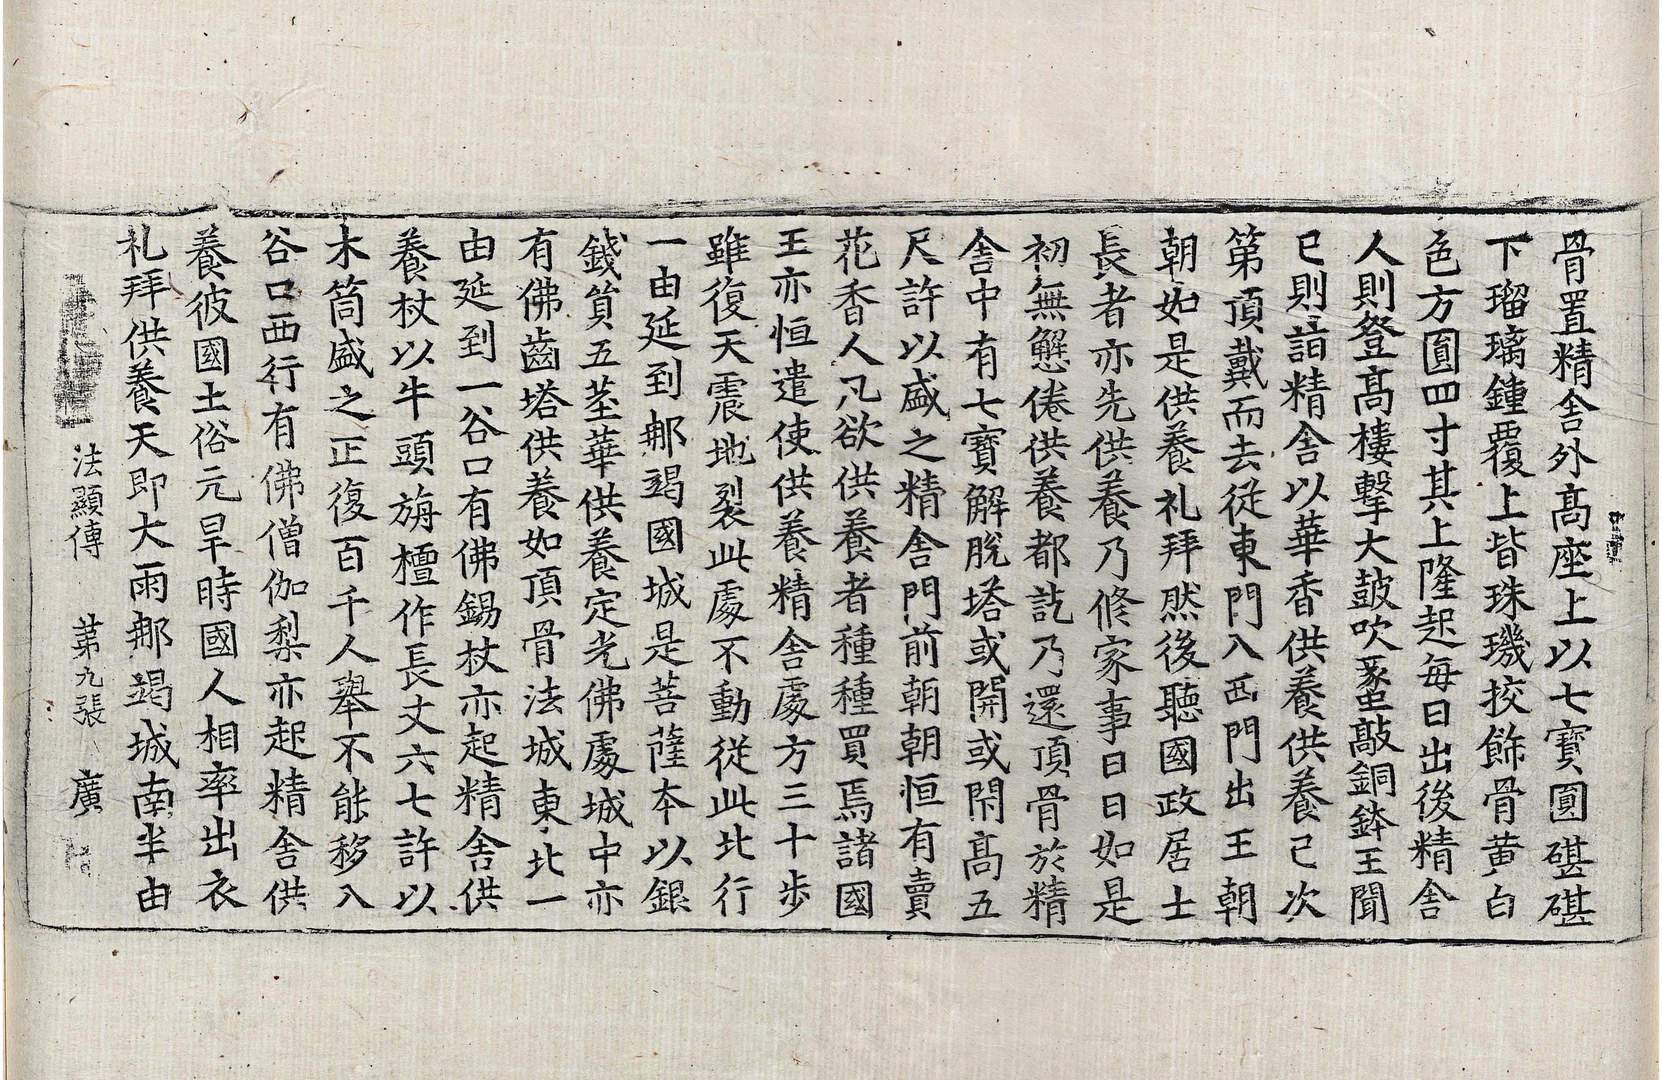 骨置精舎外髙座上以七寶圓碪碪
下瑠璃鍾覆上皆珠璣挍餝骨黄白
色方圓四寸其上隆起每日出後精舎
人則登髙樓擊大皷吹䗍敲銅鉢王聞
已則詣精舎以華香供養供養已次
第頂戴而去從東門入西門出王朝
朝如是供養礼拜然後聽國政居士
長者亦先供養乃修家事日日如是
初無懈倦供養都訖乃還頂骨於精
舎中有七寶解脫塔或開或閇髙五
尺許以盛之精舎門前朝朝恒有賣
花香人凡欲供養者種種買焉諸國
王亦恒遣使供養精舎處方三十步
雖復天震地裂此處不動從此北行
一由延到那竭國城是菩薩本以銀
錢貿五莖華供養定光佛處城中亦
有佛齒塔供養如頂骨法城東北一
由延到一谷口有佛錫杖亦起精舎供
養杖以牛頭旃檀作長丈六七許以
木筒盛之正復百千人舉不能移入
谷口西行有佛僧伽梨亦起精舎供
養彼國土俗亢旱時國人相率出衣
礼拜供養天即大雨那竭城南半由
法顯傳　第九張　廣